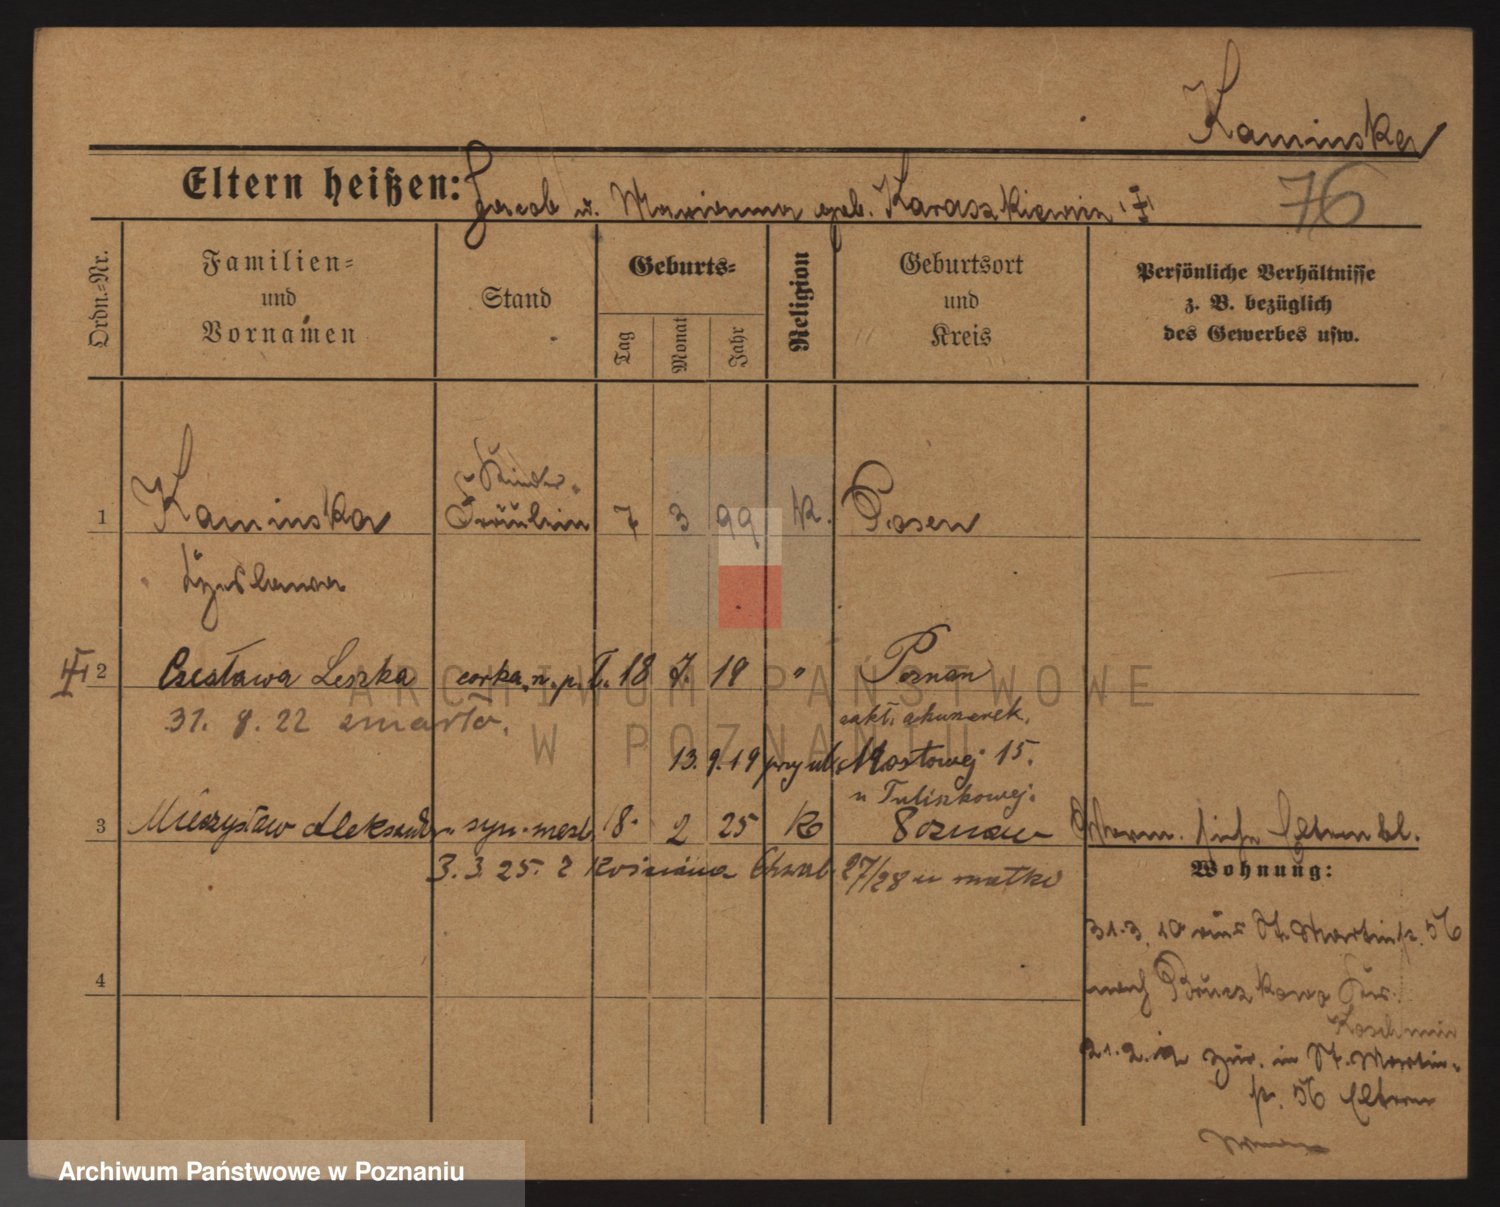 Kaminska
Eltern heißen: Jacob u. Marianna geb. Karaszkiewicz
76
Ordn.=Nr.
Familien=
und
Vornamen
Stand
Geburts=
Tag
Monat
Jahr
Religion
Geburtsort
und
Kreis
Persönliche Verhältnisse
z. B. bezüglich
des Gewerbes usw.
1 Kaminska Kinder-
Fräulein 7 3 99 K. Posen
2 Czesława Leszka corka n. p. 18 7. 19 " Poznan
31. 8. 22 zmarła.
zakł. akuszerek.
13.9.19 przy ul. Mostowej 15.
3 Mieczysław Aleksander syn 8 2 25 K Poznan
3.3.25. z 27/28 u matki
Wohnung:
31.3. aus St. Martinstr. 56
nach
Koschmin
4
21.2. zur. in St. Martin-
str. 56 Eltern
ARCHIWUM PAŃSTWOWE
W POZNANIU
Archiwum Państwowe w Poznaniu